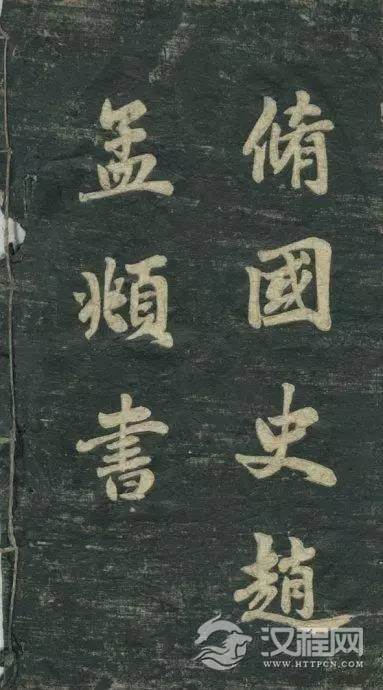 脩國史趙
孟頫書
汉程网
WWW.HTTPCN.COM